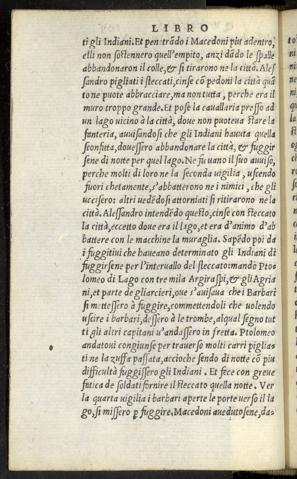 LIBRO
ti gli Indiani. Et pentrãdo i Macedoni piu adentro,
elli non sostennero quell'empito, anzi dãdo le spalle
abbandonaron il colle, & si tirarono ne la città. Ales
sandro pigliati i steccati, cinse cõ pedoni la città quã
to ne puote abbracciare, ma non tutta, perche era il
muro troppo grande. Et pose la cauallaria presso ad
un lago uicino à la città, doue non poteua stare la
fanteria, auuisandosi che gli Indiani hauuta quella
sconfitta, douessero abbandonare la città, & fuggir
sene di notte per quel lago. Ne fu uano il suo auuiso,
perche molti di loro ne la seconda uigilia, uscendo
fuori chetamente, s'abbatterono ne i nimici, che gli
uccisero: altri uedẽdosi attorniati si ritirarono ne la
città. Alessandro intendẽdo questo, cinse con steccato
la città, eccetto doue era il lago, et era d'animo d'ab
battere con le macchine la muraglia. Sapẽdo poi da
i fuggitiui che haueano determinato gli Indiani di
fuggirsene per l'interuallo del steccato: mandò Pto
lomeo di Lago con tre mila Argiraspi, & gli Agria
ni, et parte de gli arcieri, oue s'auisaua che i Barbari
si mettessero à fuggire, commettendoli che uolendo
uscire i barbari, dessero à le trombe, al qual segno tut
ti gli altri capitani u'andassero in fretta. Ptolomeo
andatoui congiunse per trauerso molti carri piglia-
ti ne la zuffa passata, accioche sendo di notte cõ piu
difficultà fuggissero gli Indiani. Et fece con greue
fatica de soldati fornire il steccato quella notte. Ver
la quarta uigilia i barbari aperte le porte uerso il la
go, si missero p fuggire. Macedoni auedutosene, da-